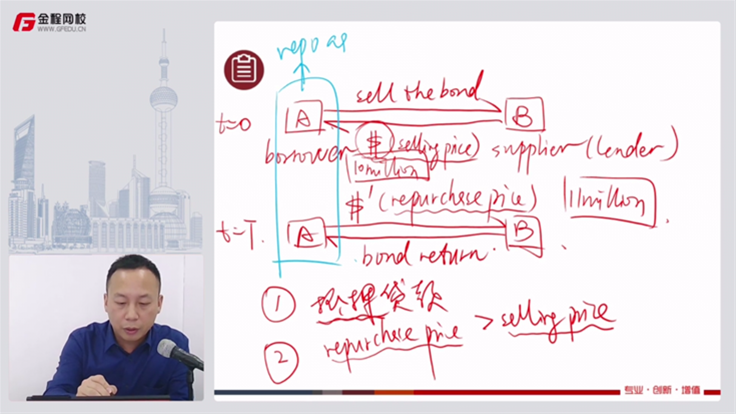 金程网校
WWW.GFEDU.CN
repo
sell the bond
t=0
A
B
borrower
$ (selling price)
supplier (lender)
10 million
$' (repurchase price)
11 million
t=T.
A
B
bond return
① 抵押贷款
② repurchase price > selling price
专业·创新·增值